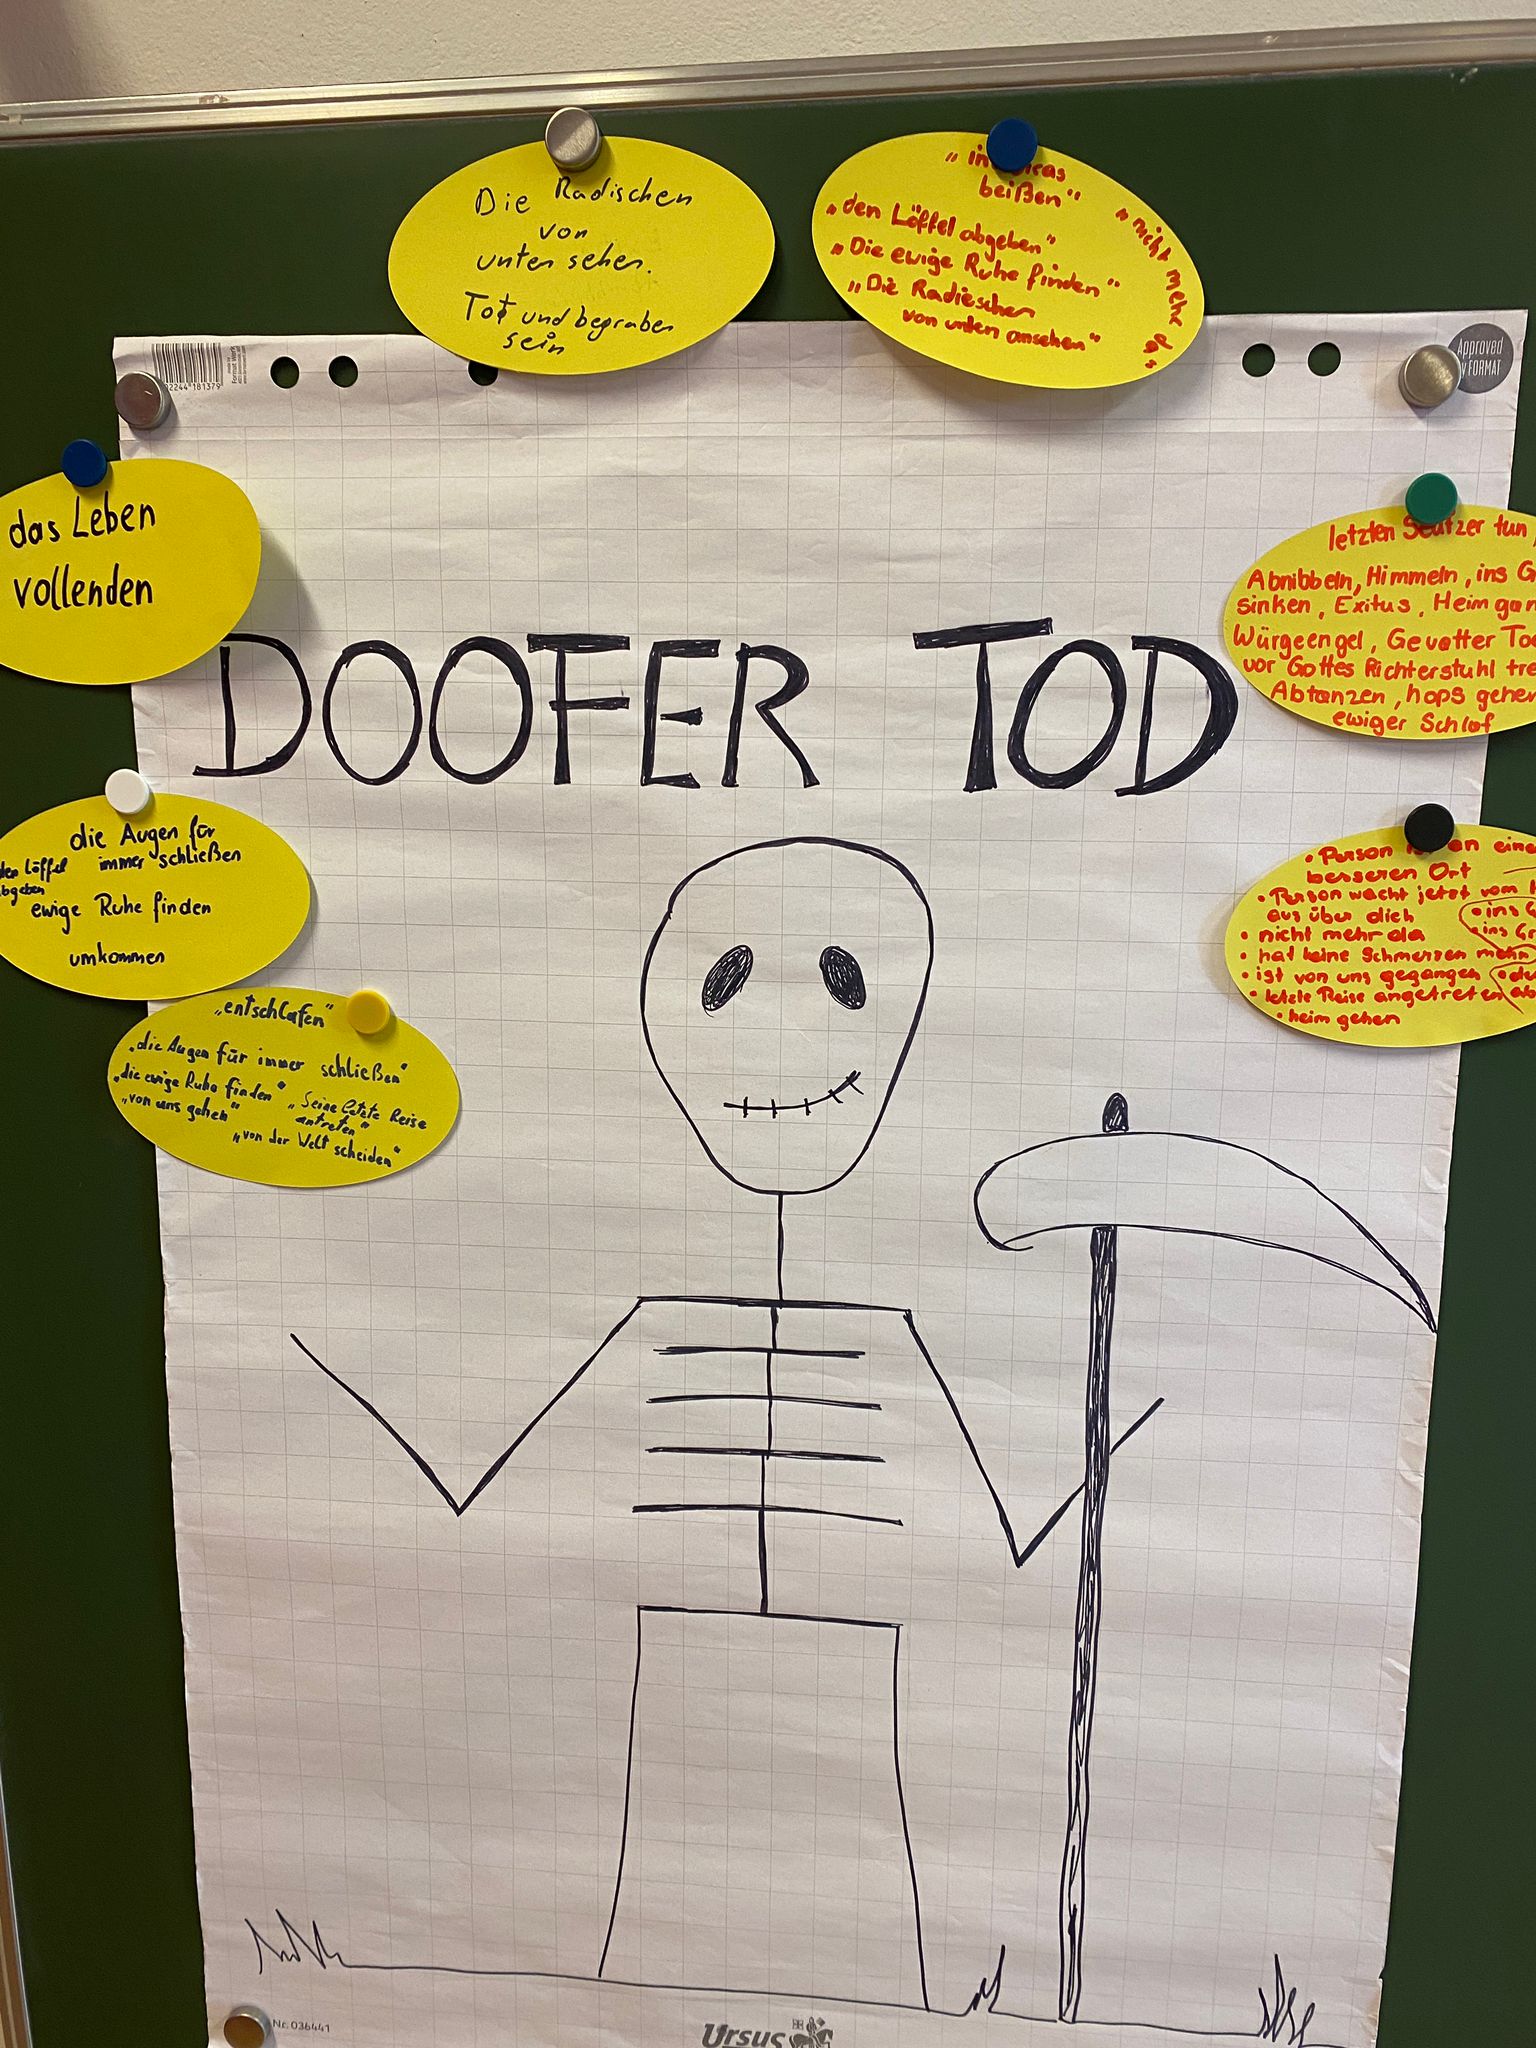 Die Radischen
von
unten sehen.
Tot und begraben
sein
"in
beißen"
"den Löffel abgeben"
"Die ewige Ruhe finden"
"Die Radieschen
von unten ansehen"
"nicht mehr da"
2244"181379
Approved
FORMAT
das Leben
vollenden
letzten Seufzer tun,
Abnibbeln, Himmeln, ins G
sinken, Exitus, Heimgan
Würgeengel, Gevatter To
vor Gottes Richterstuhl tre
Abtanzen, hops gehen
ewiger Schlaf
DOOFER TOD
die Augen für
immer schließen
den Löffel
abgeben
ewige Ruhe finden
umkommen
• Person an eine
besseren Ort
• Person wacht jetzt vom H
aus über dich
• nicht mehr da
• hat keine Schmerzen mehr
• ist von uns gegangen
• letzte Reise angetreten
• heim gehen
• ins G
• ins Gr
"entschlafen"
"die Augen für immer schließen"
"die ewige Ruhe finden"
"Seine letzte Reise
antreten"
"von uns gehen"
"von der Welt scheiden"
Nr. 036441
Ursus